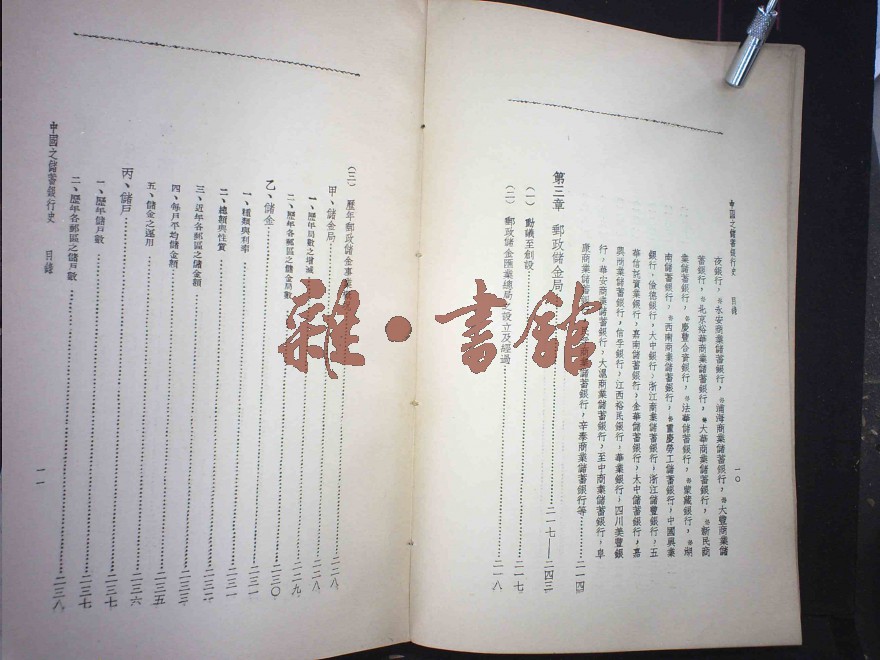 中國之儲蓄銀行史　目錄
一〇
夜銀行，永安商業儲蓄銀行，浦海商業儲蓄銀行，大豐商業儲
蓄銀行，北京裕華商業儲蓄銀行，大華商業儲蓄銀行，新民商
業儲蓄銀行，慶豐合資銀行，法華儲蓄銀行，蒙藏銀行，湖
南儲蓄銀行，西南商業儲蓄銀行，重慶勞工儲蓄銀行，中國興業
銀行，儉德銀行，大中銀行，浙江商業儲蓄銀行，浙江儲豐銀行，五
華信託實業銀行，嘉南儲蓄銀行，金華儲蓄銀行，太中儲蓄銀行，嘉
興商業儲蓄銀行，信孚銀行，江西裕民銀行，華業銀行，四川美豐銀
行，華安商業儲蓄銀行，大滬商業儲蓄銀行，至中商業儲蓄銀行，阜
康商業儲蓄銀行，商業儲蓄銀行，辛泰商業儲蓄銀行等……二一四
第三章　郵政儲金局……二一七—二四三
（一）　動議至創設……二一七
（二）　郵政儲金匯業總局之設立及經過……二一八
（三）　歷年郵政儲金事業
甲、儲金局……二二八
一、歷年局數之增減……二二八
二、歷年各郵區之儲金局數……二二九
乙、儲金……二三〇
一、種類與利率……二三一
二、總額與性質……二三二
三、近年各郵區之儲金額……二三三
四、每戶平均儲金額……二三五
五、儲金之運用……二三六
丙、儲戶……二三七
一、歷年儲戶數……二三七
二、歷年各郵區之儲戶數……二三八
中國之儲蓄銀行史　目錄
一一
雜·書館